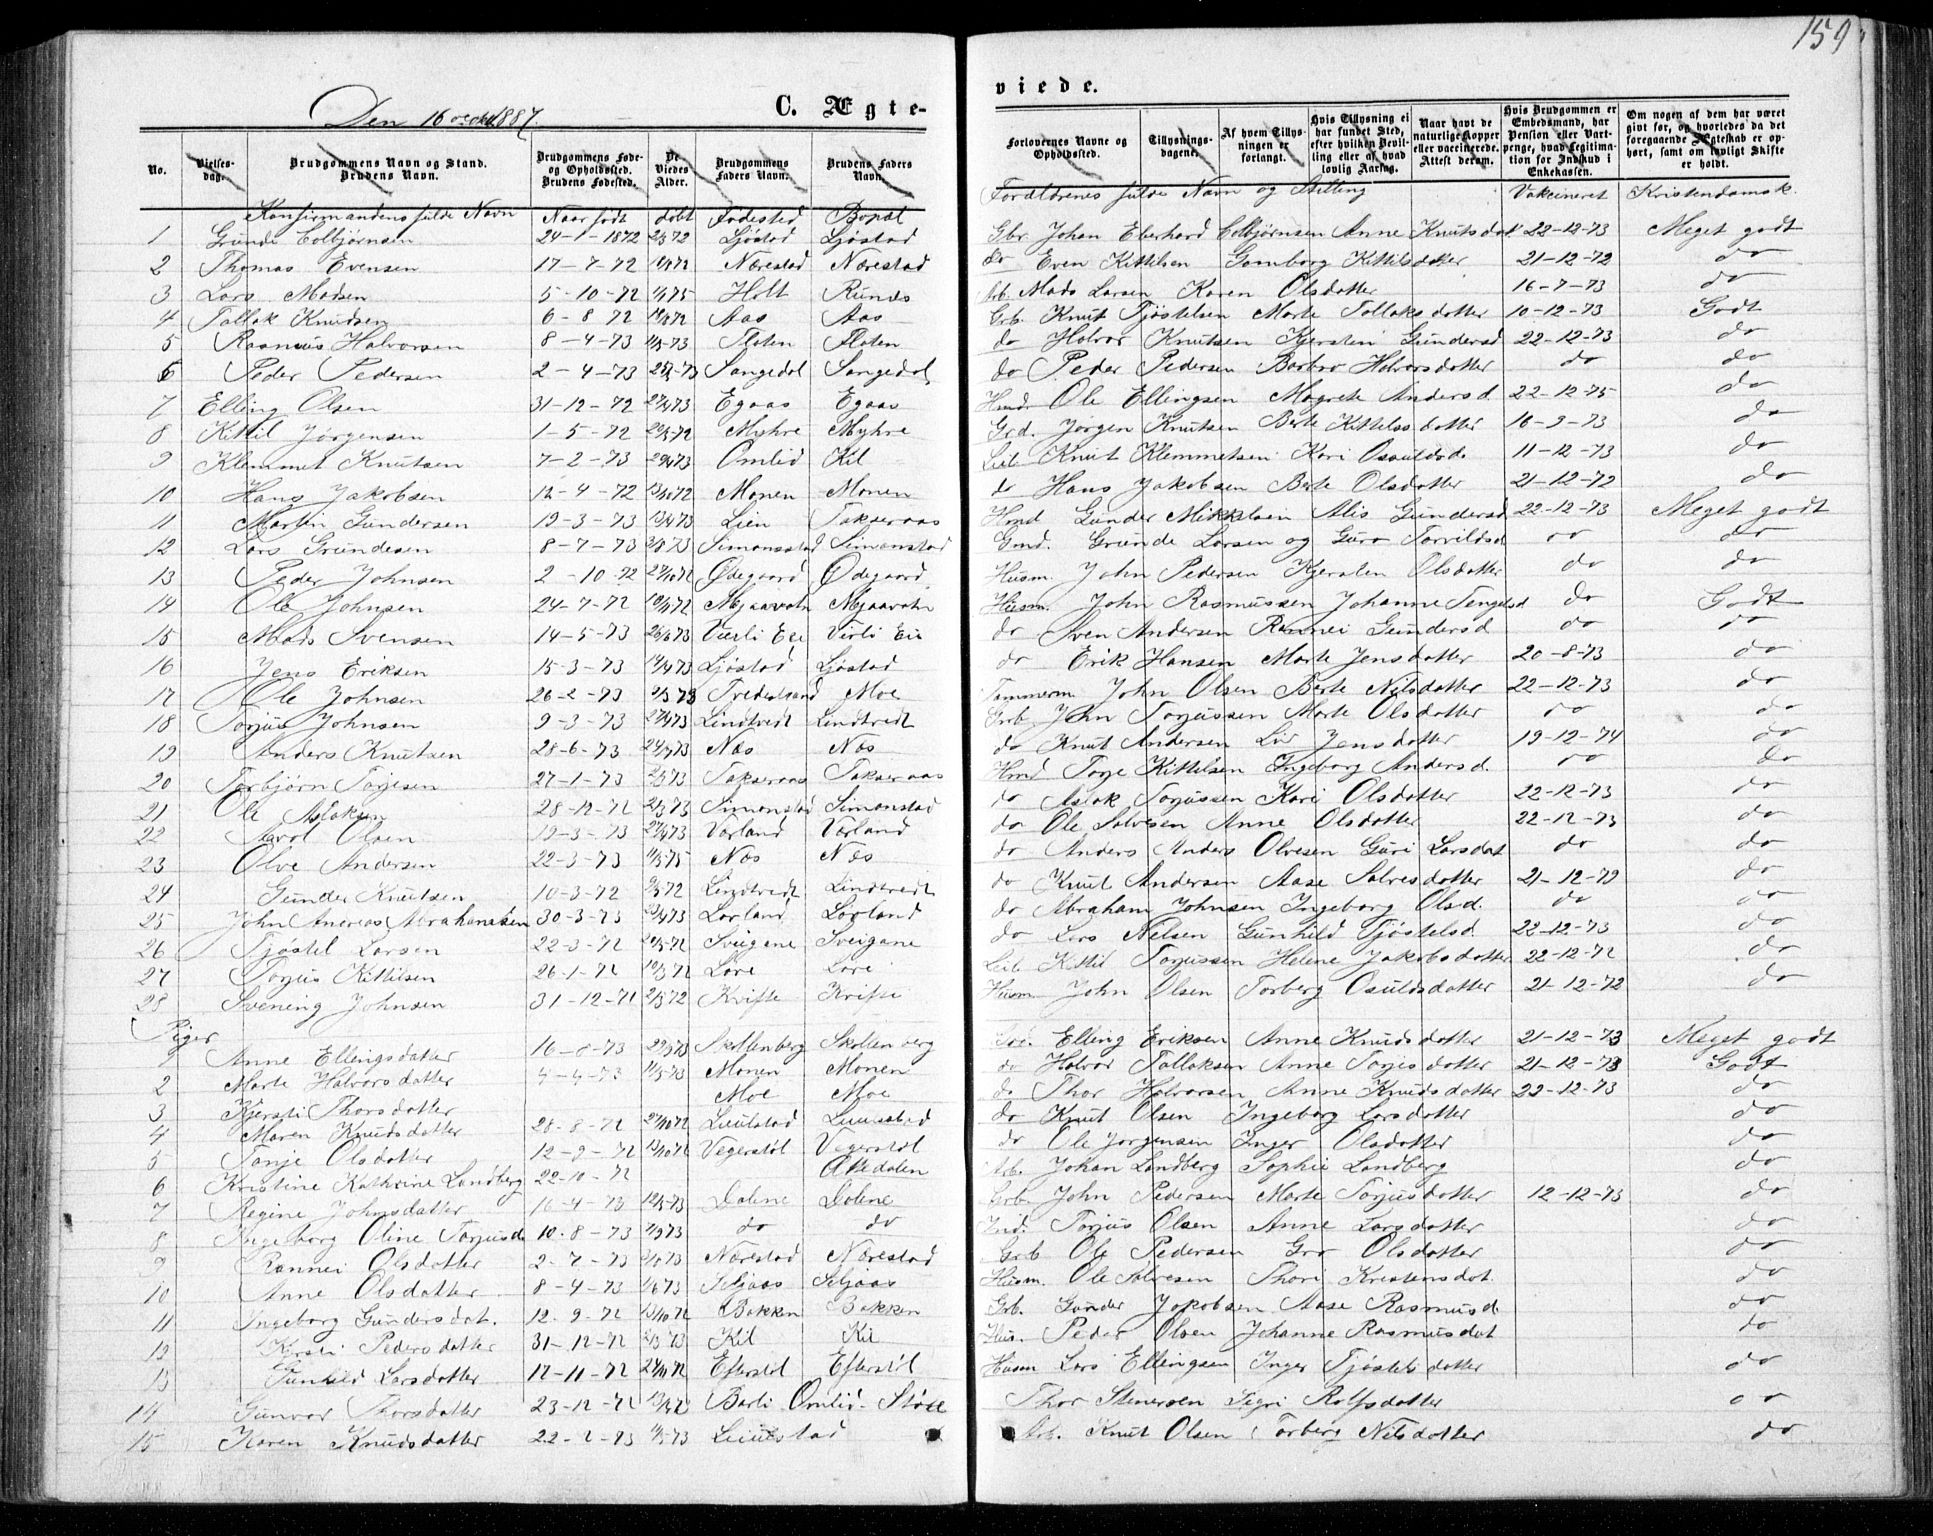 159
Den 16 okt 1887.
C. Ægte-
viede.
No. Vielses-dage. Brudgommens Navn og Stand. Brudens Navn. Brudgommens Føde- og Opholdssted. Brudens Fødested. De Viedes Alder. Brudgommens Faders Navn. Brudens Faders Navn. Forlovernes Navne og Opholdssted. Tillysnings-dagene. Af hvem Tillysningen er forlangt. Hvis Tillysning ei har fundet Sted, efter hvilken Bevilling eller af hvad lovlig Aarsag. Naar havt de naturlige Kopper eller vaccinerede. Attest derom. Hvis Brudgommen er Embedsmand, har Pension eller Vartpenge, hvad Legitimation for Indskud i Enkekassen. Om nogen af dem har været givt før, og hvorledes da det foregaaende Ægteskab er ophørt, samt om lovligt Skifte er holdt.
Konfirmandens fulde Navn Naar født døbt Fødested Bopæl Forældrenes fulde Navn og Stilling Vakcineret Kristendomsk.
1 Grunde Colbjørnsen 24-1-1872 Ljøstad Ljøstad Gbr. Johan Eberhard Colbjørnsen Anne Knutsdat 22-12-73 Meget godt
2 Thomas Evensen 17-7-72 Nærestad Nærestad do Even Kittilsen Gomborg Kittilsdatter 21-12-72 do
3 Lars Madsen 5-10-72 Holt Runds Arb. Mads Larsen Karen Olsdatter 16-7-73 do
4 Tallak Knudsen 6-8 72 Aas Aas Grb. Knut Tjøstelsen Marte Tallaksdatter 10-12-73 Godt
5 Rasmus Halvorsen 8-4-73 Floten Floten do Halvor Knutsen Kjersten Gundersd 22-12-73 do
6 Peder Pedersen 2-4-73 Songedal Songedal do Peder Pedersen Barbro Halvorsdatter do do
7 Elling Olsen 31-12-72 Egaas Egaas Hmd. Ole Ellingsen Magrete Andersd. 22-12-75 do
8 Kittil Jørgensen 1-5-72 Myhre Myhre Grd. Jørgen Knutsen Berte Kittelsdatter 16-3-73 do
9 Klemmet Knutsen 7-2-73 Omlid Kil Leil. Knut Klemmetsen Kari Osuldsd. 11-12-73 do
10 Hans Jakobsen 12-4-72 Monen Monen do Hans Jakobsen Berte Olsdatter 21-12-72 do
11 Martin Gundersen 19-3-73 Lien Takseraas Hmd Gunder Mikkelsen Alis Gundersd 22-12-73 Meget godt
12 Lars Grundesen 8-7-73 Simonsstad Simonstad Gmd. Grunde Larsen og Guro Torvildsd. do do
13 Peder Johnsen 2-10-72 Ødegaard Ødegaard Husm. John Pedersen Kjersten Olsdatter do do
14 Ole Johnsen 24-7-72 Mjaavatn Mjaavatn Husm. John Rasmussen Johanne Tengelsd do Godt
15 Mads Svensen 14-5-73 Virli Eie do Sven Andersen Rannei Gundersd do do
16 Jens Eriksen 15-3-73 Ljøstad Ljøstad do Erik Hansen Marte Jensdatter 20-8-73 do
17 Ole Johnsen 26-2-73 Tvedestrand Moe Tømmerm John Olsen Berte Nilsdatter 22-12-73 do
18 Torjus Johnsen 9-3-73 Lindtvedt Lindtvedt Grb. John Torjussen Marte Olsdatter do do
19 Anders Knutsen 28-6-73 Næs Næs do Knut Andersen Liv Jensdatter 19-12-74 do
20 Torbjørn Torjesen 27-1-73 Takseraas Takseraas Hmd Torje Kittilsen Ingeborg Andersd. do do
21 Ole Aslaksen 28-12-72 Simonstad Simonstad do Aslak Torjussen Kari Olsdatter 22-12-73 do
22 Olsen 19-3-73 Vorland Vorland do Ole Salvesen Anne Olsdatter 22-12-73 do
23 Olve Andersen 22-3-73 Næs Næs do Anders Anders Olvesen Guri Larsdat do do
24 Gunder Knutsen 10-3-72 Lindtvedt Lindtvedt do Knut Andersen Aase Salvesdatter 21-12-72 do
25 John Andreas Abrahamsen 30-3-73 Lovland Lovland do Abraham Johnsen Ingeborg Olsd. do do
26 Tjøstel Larsen 22-3-72 Sveigene Sveigane do Lars Nelsen Gunhild Tjøstelsd. 22-12-73 do
27 Torjus Kittilsen 26-1-72 Løve Løve Leil. Kittil Torjussen Helene Jakobsdatter 22-12-72 do
28 Svening Johnsen 31-12-71 Kvifte Kvifte Husm. John Olsen Torberg Osuldsdatter 21-12-72 do
Piger
1 Anne Ellingsdatter 16-8-73 Skottenberg Skottenberg Grd. Elling Eriksen Anne Knudsdatter 21-12-73 Meget godt
2 Marte Halvorsdatter 4-4-73 Monen Monen do Halvor Tallaksen Anne Torjesdatter 21-12-73 Godt
3 Kjersti Thorsdatter Moe Moe do Thor Halvorsen Anne Knudsdatter 22-12-73 do
4 Maren Knudsdatter 28-8-72 Liuilstad do Knut Olsen Ingeborg Larsdatter do
5 Tonje Olsdatter 12-9-72 Vegerstøl Vegerstøl do Ole Jørgensen Inger Olsdatter do
6 Kristine Kathrine Landberg 22-10-72 Askedalen Arb. Johan Landberg Sophie Landberg do
7 Regine Johnsdatter 16-4-73 Dalene Dalene Grb. John Pedersen Marte Torjusdatter 12-12-73 do
8 Ingeborg Oline Torjusd 10-8-73 do do Ind. Torjus Olsen Anne Larsdatter do
9 Rannei Olsdatter 2-7-73 Nærestad Nærestad Grb Ole Pedersen Gro Olsdatter do
10 Anne Olsdatter 8-4-73 Seljaas Seljaas Husm. Ole Salvesen Thori Kristensdat. do
11 Ingeborg Gundersdat. 12-9-72 Bakken Bakken Grb. Gunder Jakobsen Aase Rasmusd. do
12 Kirsti Pedersdatter 31-12-72 Kil Kil Hus. Peder Olsen Johanne Rasmusdat do
13 Gunhild Larsdatter 17-11-72 Eferstøl Eferstøl Husm Lars Ellingsen Inger Tjøstelsdatter do
14 Gunvor Thorsdatter 23-12-72 Omlid Thor Stenersen Sigri Rolfsdatter do
15 Karen Knudsdatter 22-2-73 Liuilstad Arb. Knut Olsen Torberg Nilsdatter do